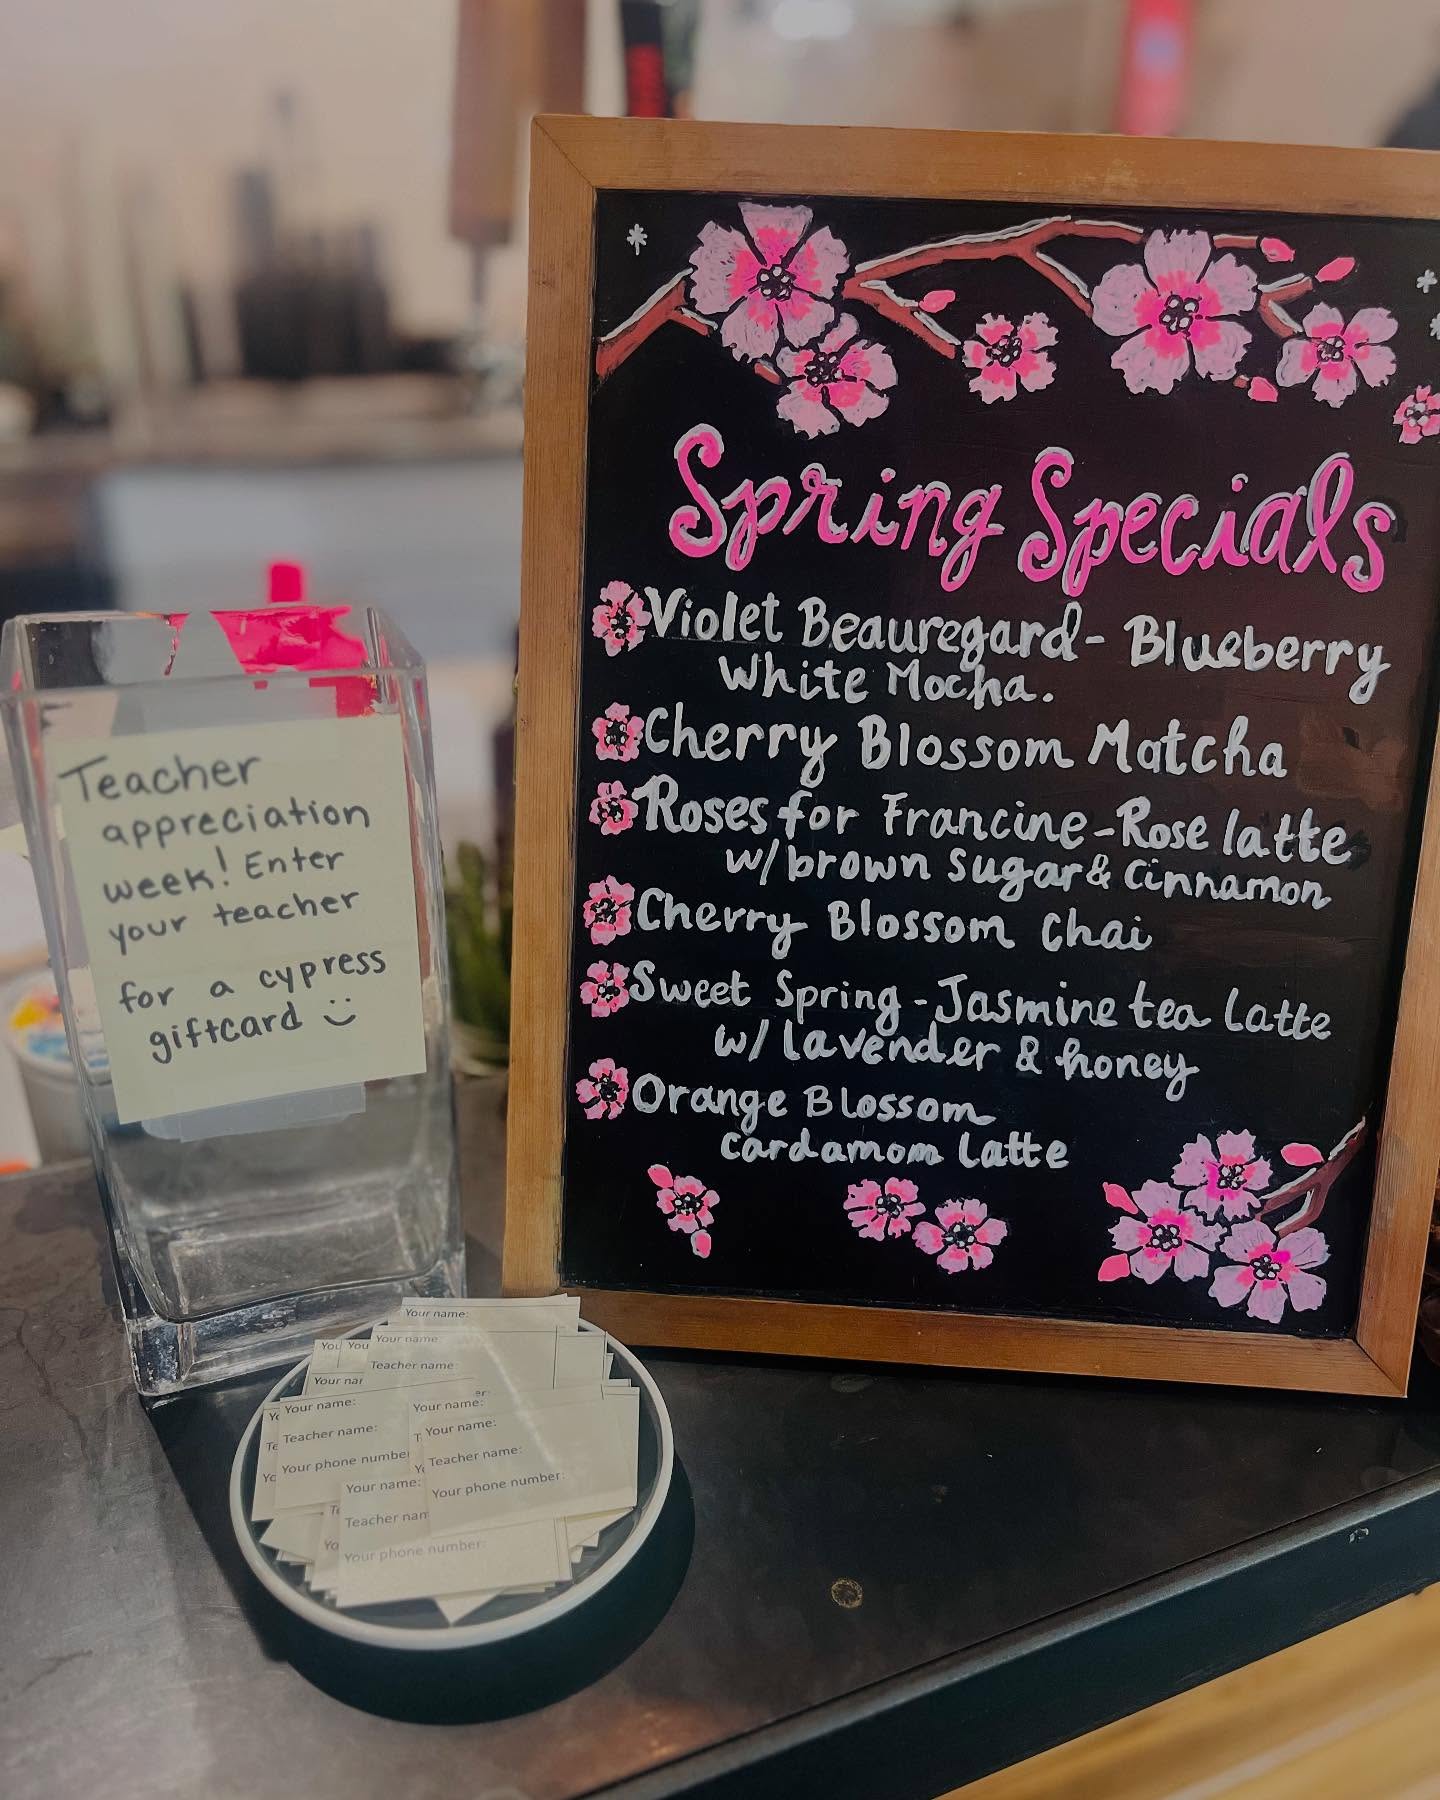 Spring Specials
Violet Beauregard- Blueberry
White Mocha.
Cherry Blossom Matcha
Roses for Francine-Rose latte
w/brown sugar& cinnamon
Cherry Blossom Chai
Sweet Spring-Jasmine tea latte
w/ lavender & honey
Orange Blossom
cardamom latte
Teacher
appreciation
week! Enter
your teacher
for a cypress
giftcard
Your name:
You
You
Your name:
Teacher name:
Your nar
er:
Your name:
Teacher name:
Your phone number
Your name:
Your name:
Teacher name:
Your phone number:
Your name:
Teacher nam
Your phone number: